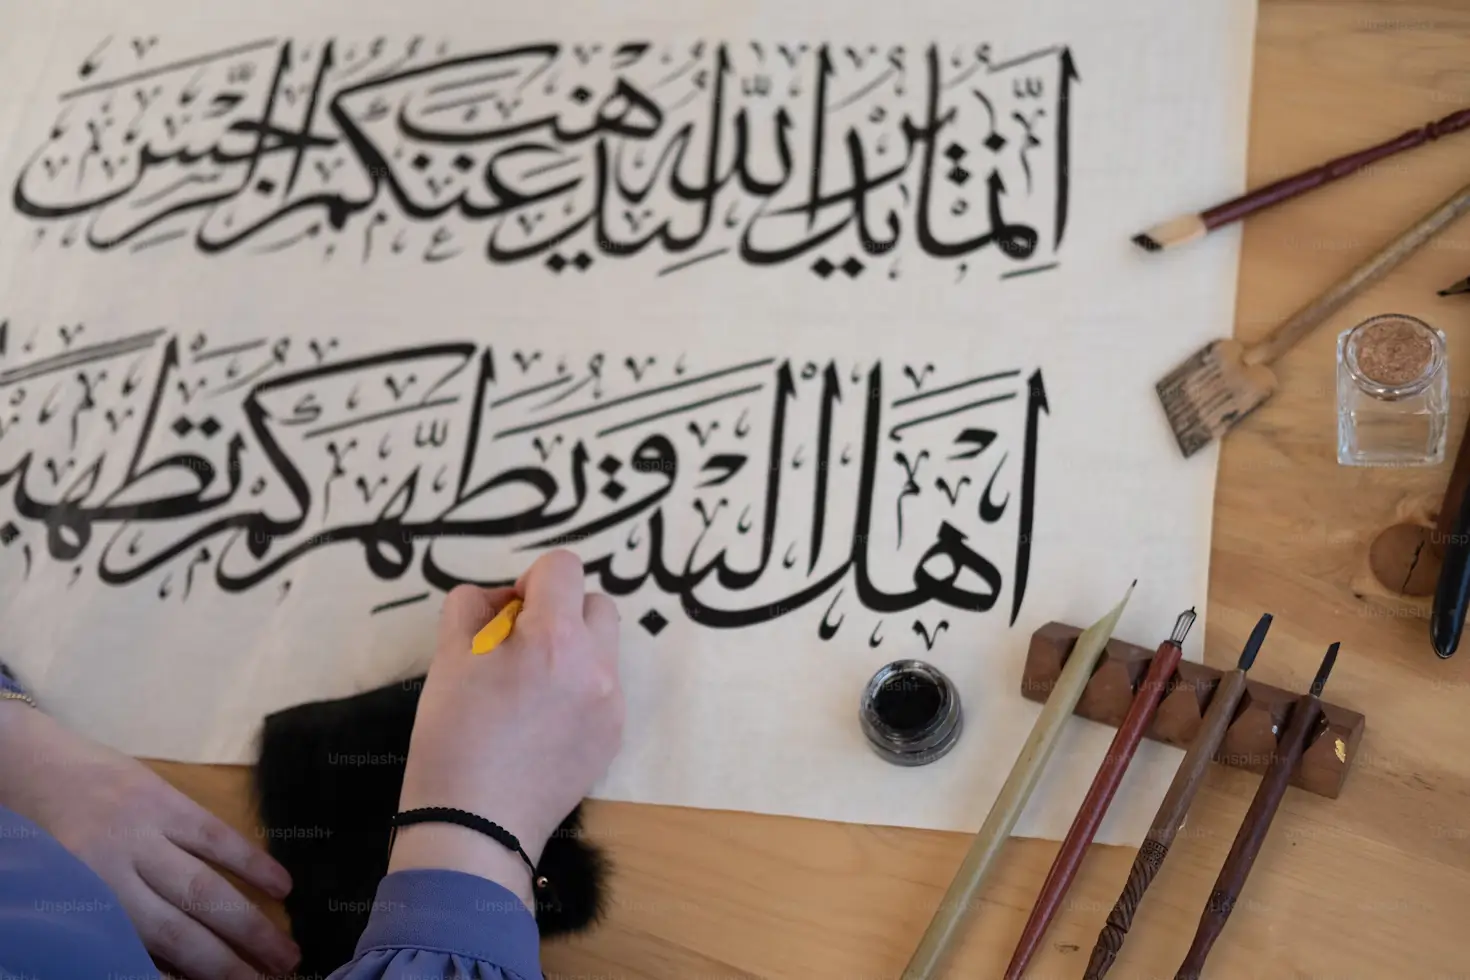 إنما يريد الله ليذهب عنكم الرجس
أهل البيت ويطهركم تطهيرا
Unsplash+